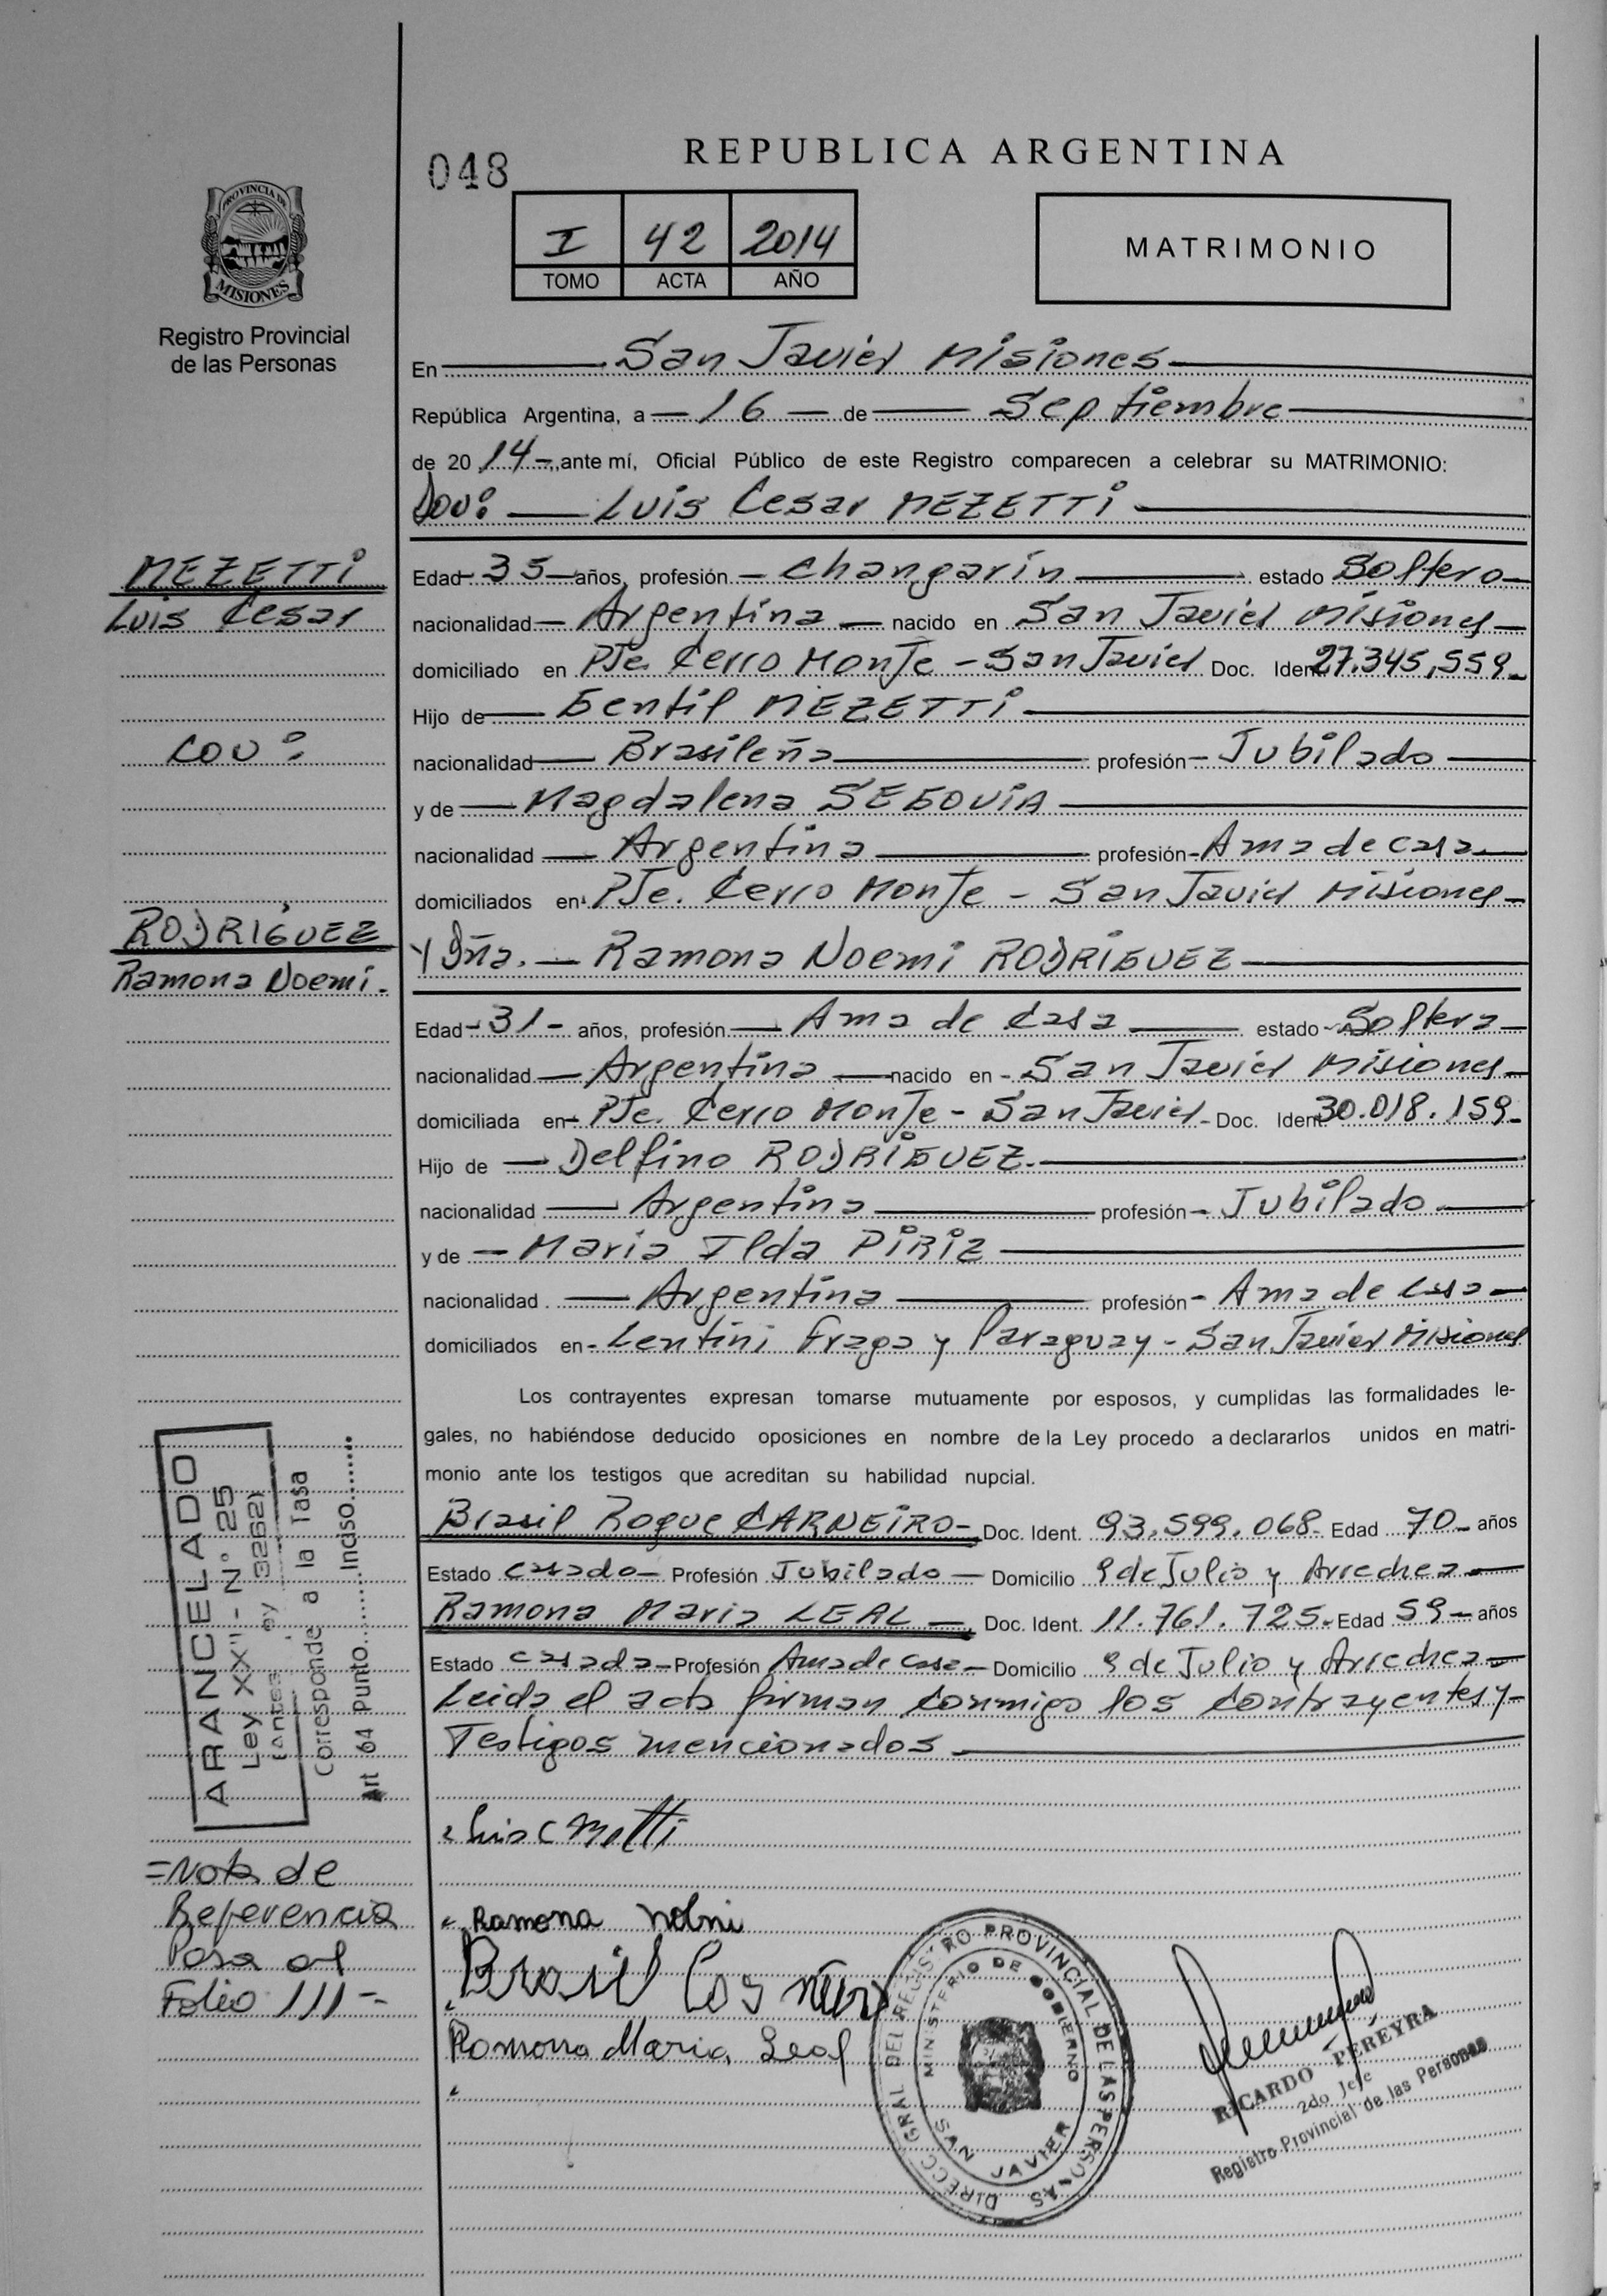 048
REPUBLICA ARGENTINA
PROVINCIA DE
MISIONES
Registro Provincial
de las Personas
I 42 2014
TOMO ACTA AÑO
MATRIMONIO
En San Javier Misiones
República Argentina, a 16 de Septiembre
de 2014, ante mí, Oficial Público de este Registro comparecen a celebrar su MATRIMONIO:
Luis Cesar MEZETTI
MEZETTI
Luis Cesar
Edad 35 años, profesión Changarín estado Soltero
nacionalidad Argentina nacido en San Javier Misiones
domiciliado en Pje. Cerro Monje - San Javier Doc. Ident 27.345,559
Hijo de Gentil MEZETTI
con:
nacionalidad Brasileña profesión Jubilado
y de Magdalena SEGOVIA
nacionalidad Argentina profesión Ama de casa
domiciliados en Pje. Cerro Monje - San Javier Misiones
RODRIGUEZ
Ramona Noemi.
Y Dña. Ramona Noemi RODRIGUEZ
Edad 31 años, profesión Ama de Casa estado Soltera
nacionalidad Argentina nacido en San Javier Misiones
domiciliada en Pje. Cerro Monje - San Javier Doc. Ident 30.018.159
Hijo de Delfino RODRIGUEZ.
nacionalidad Argentina profesión Jubilado
y de Maria Ilda PIRIZ
nacionalidad Argentina profesión Ama de Casa
domiciliados en Lentini Fraga y Paraguay - San Javier Misiones
Los contrayentes expresan tomarse mutuamente por esposos, y cumplidas las formalidades le-
gales, no habiéndose deducido oposiciones en nombre de la Ley procedo a declararlos unidos en matri-
monio ante los testigos que acreditan su habilidad nupcial.
Brasil Roque CARNEIRO Doc. Ident. 93.599.068 Edad 70 años
Estado casado Profesión Jubilado Domicilio 9 de Julio y Arrechea
Ramona Maria LEAL Doc. Ident. 11.761.725 Edad 59 años
Estado casada Profesión Ama de casa Domicilio 9 de Julio y Arrechea
Leida el acta firman conmigo los contrayentes y
Testigos mencionados
ARANCELADO
Ley XX" - N° 25
(Antes Ley 3262)
Corresponde a la Tasa
Art 64 Punto Inciso
=Nota de
Referencia
Pasa al
Folio 111-
Ramona
Brasil
Ramona Maria Leal
DIRECC GRAL DEL REGISTRO PROVINCIAL DE LAS PERSONAS
MINISTERIO DE GOBIERNO
SAN JAVIER
RICARDO PEREYRA
2do Jefe
Registro Provincial de las Personas